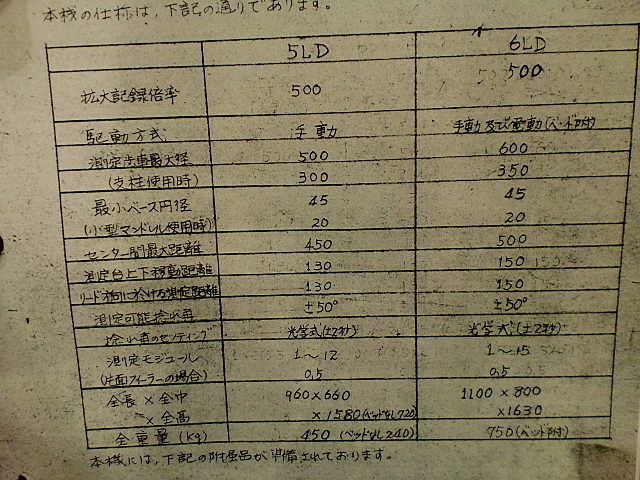 本機の仕様は、下記の通りであります。
5LD 6LD
拡大記録倍率 500 500
駆動方式 手動 手動及び電動(ベッド附)
測定歯車最大径 500 600
(支柱使用時) 300 350
最小ベース円径 45 45
(小型マンドレル使用時) 20 20
センター間最大距離 450 500
測定台上下移動距離 130 150
リード方向に於ける測定距離 130 150
測定可能捻れ角 ±50° ±50°
捻れ角のセッティング 光学式(±2秒) 光学式(±2秒)
測定モジュール 1〜12 1〜15
(片面フィーラーの場合) 0,5 0,5
全長×全巾 960×660 1100×800
×全高 ×1580(ベッドなし720) ×1630
全重量(Kg) 450(ベッドなし240) 750(ベッド附)
本機には、下記の附属品が準備されております。